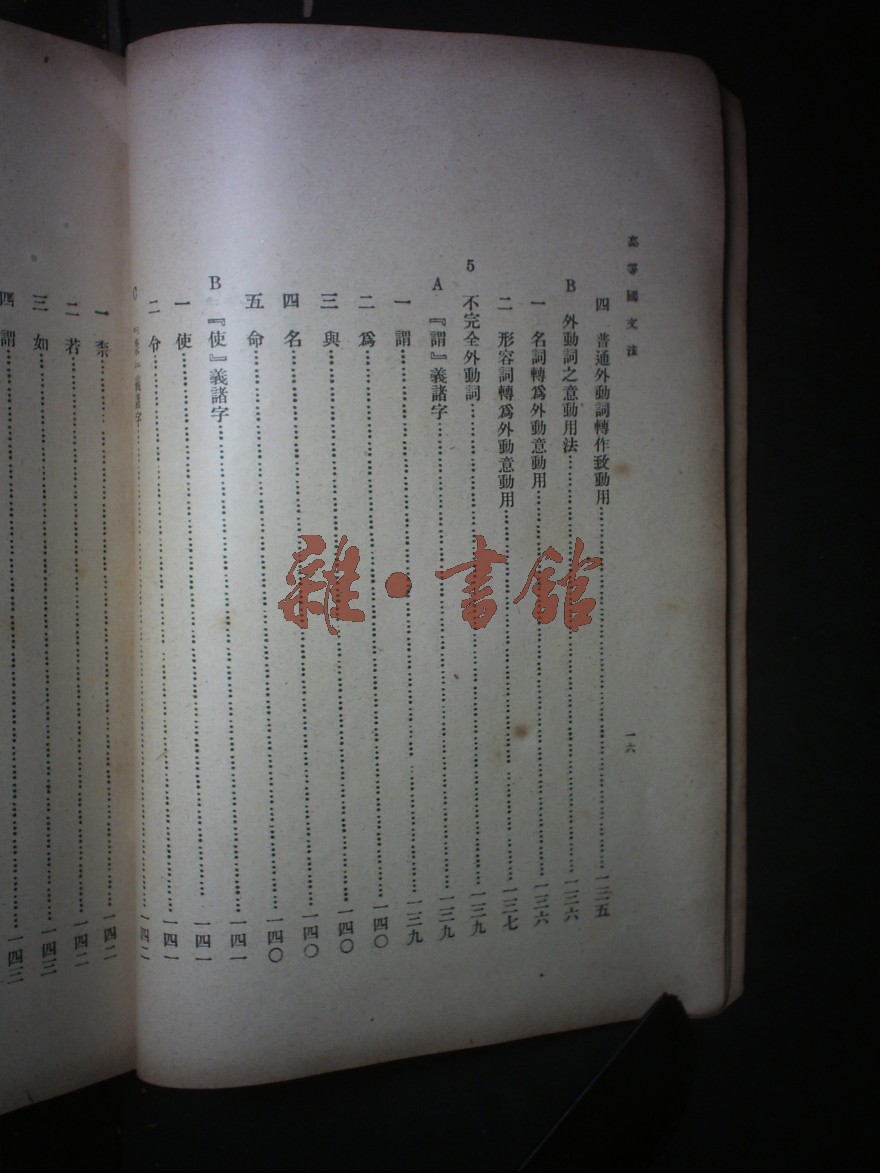 高等國文法 一六
四 普通外動詞轉作致動用……一三五
B 外動詞之意動用法……一三六
一 名詞轉爲外動意動用……一三六
二 形容詞轉爲外動意動用……一三七
5 不完全外動詞……一三九
A 『謂』義諸字……一三九
一 謂……一三九
二 爲……一四〇
三 與……一四〇
四 名……一四〇
五 命……一四〇
B 『使』義諸字……一四一
一 使……一四一
二 令……一四一
C 『』義諸字……一四二
一 柰……一四二
二 若……一四二
三 如……一四三
四 謂……一四三
雜·書館